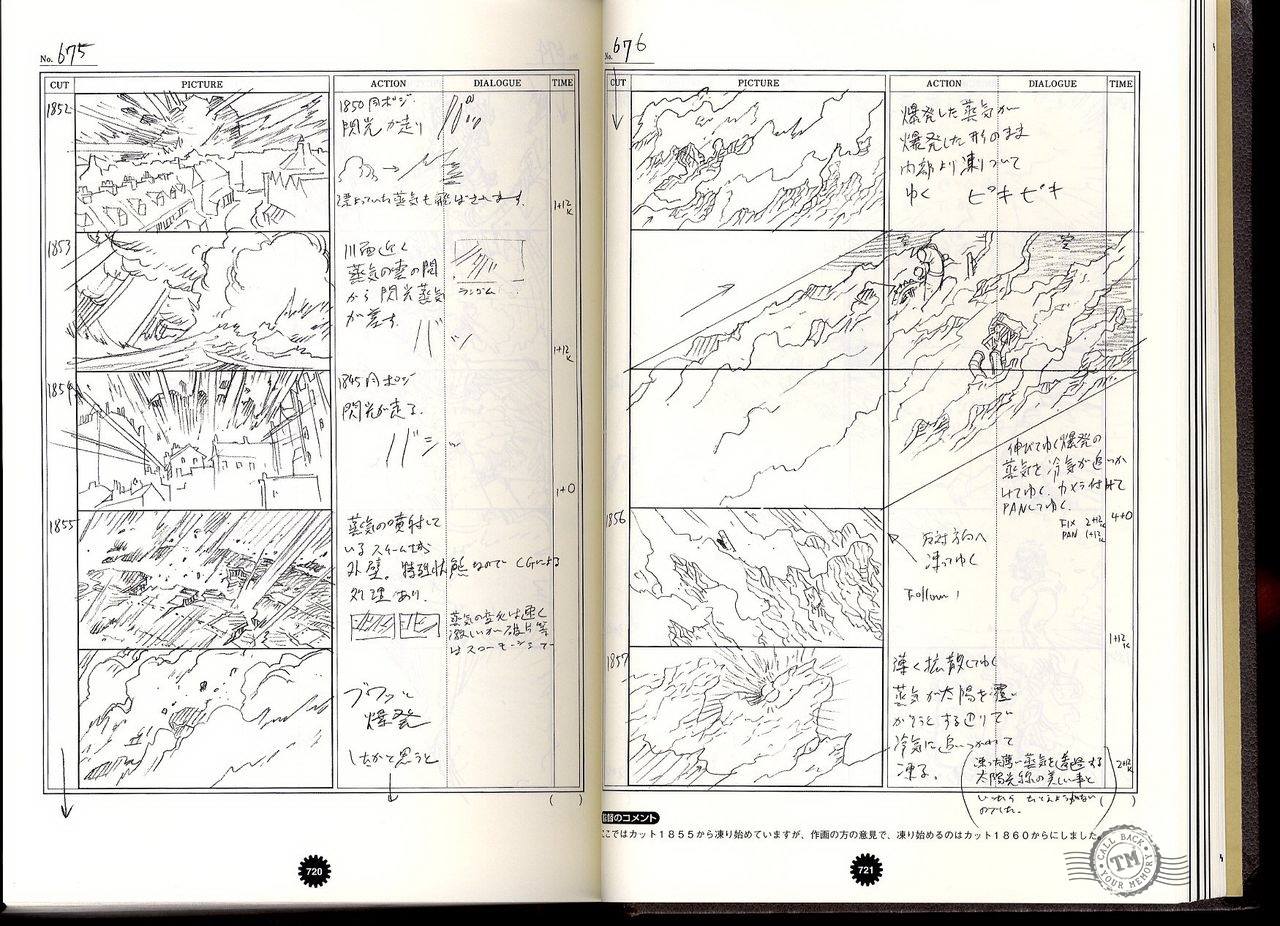 No. 675
CUT
PICTURE
ACTION
DIALOGUE
TIME
1852
1850 同ポジ
閃光が走り
漂よっている蒸気も飛ばされます。
1+12K
1853
川面近く
蒸気の雲の間
から閃光蒸気
が差す。
ランダム
バ
1+12K
1854
1845 同ポジ
閃光が走る。
バシ
1+0
1855
蒸気の噴射して
いるスチーム城
外壁。特殊状態なので CGによる
処理あり。
蒸気の変化は速く
激しいが破片等
はスローモーションで
ブワッと
爆発
したかと思うと
( )
720
No. 676
CUT
PICTURE
ACTION
DIALOGUE
TIME
爆発した蒸気が
爆発した形のまま
内部より凍りついて
ゆく ピキピキ
伸びてゆく爆発の
蒸気を冷気が追いか
けてゆく。カメラ付けて
PANしてゆく。
FIX 2+12K
PAN 1+12K
4+0
1856
反対方向へ
凍ってゆく
Follow
1+12K
1857
薄く拡散してゆく
蒸気が太陽を覆い
かくそうとする辺りで
冷気に追いつかれて
凍る。
凍った薄い蒸気を透過する
太陽光線の美しい事と
いったら
2+12K
( )
監督のコメント
ここではカット1855から凍り始めていますが、作画の方の意見で、凍り始めるのはカット1860からにしました。
721
CALL BACK
TM
YOUR MEMORY